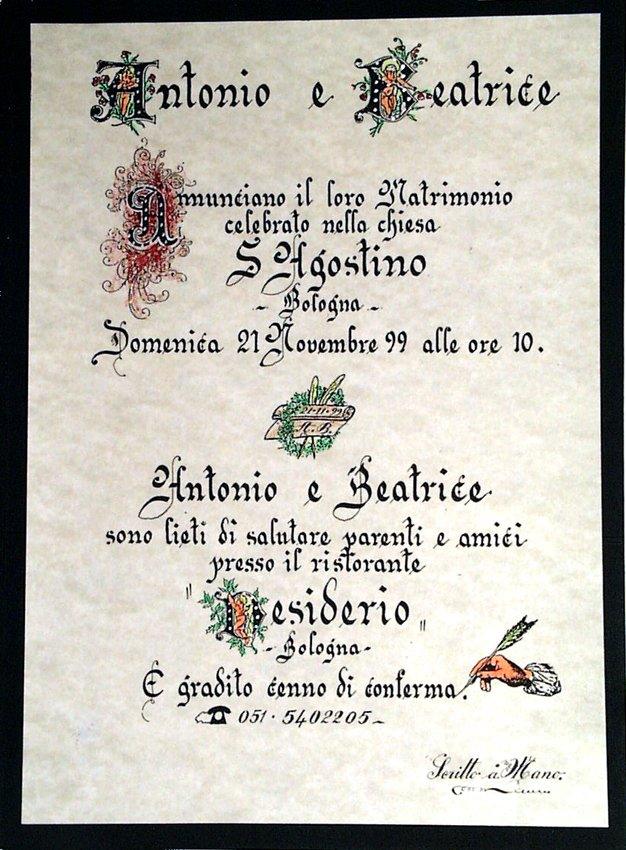 Antonio e Beatrice
Annunciano il loro Matrimonio
celebrato nella chiesa
S Agostino
- Bologna -
Domenica 21 Novembre 99 alle ore 10.
21-11-99
A. B.
Antonio e Beatrice
sono lieti di salutare parenti e amici
presso il ristorante
"Desiderio"
- Bologna -
E gradito cenno di conferma.
051 · 5402205 -
Scritto à Mano: